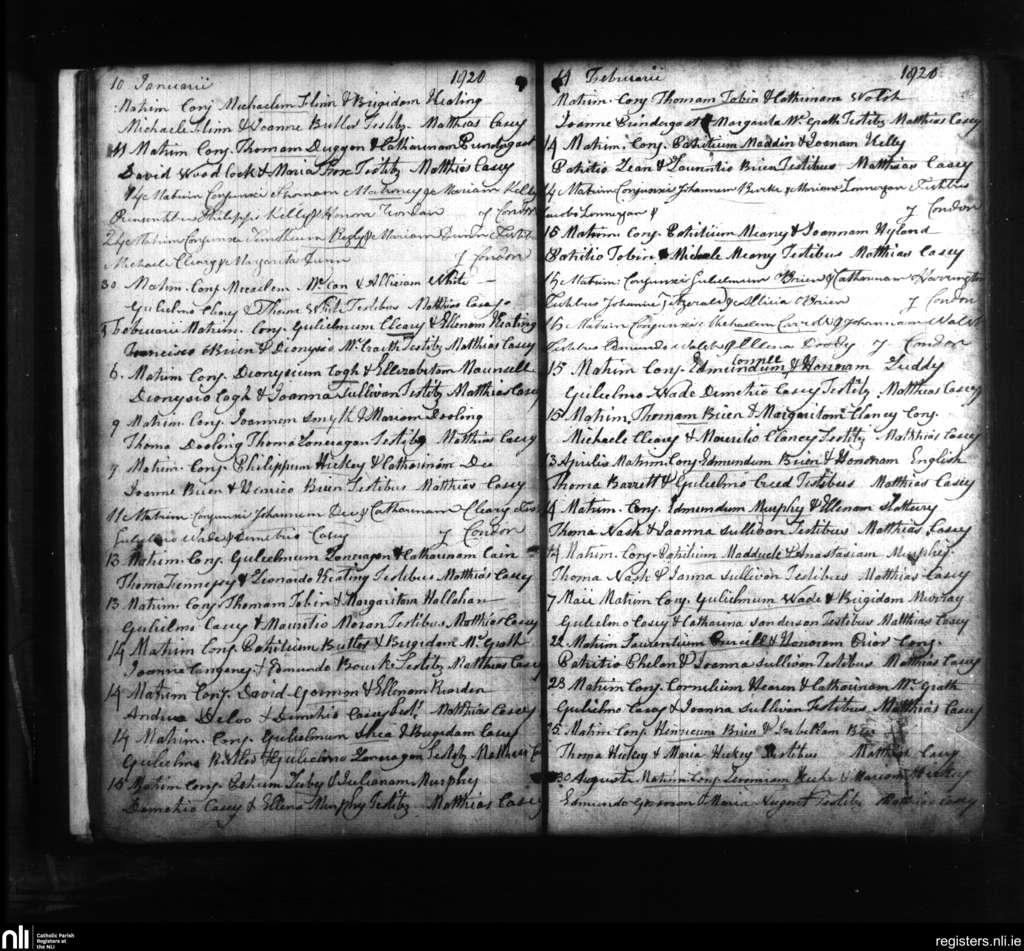 10 Januarii 1820
Matrim Conj Michaelem Flinn & Brigidam Keating
Michaele Flinn & Joanne Butler Testibz Matthias Casey
11 Matrim Conj. Thomam Duggan & Catharinam Prendergast
David Woodlock & Maria Testibz Matthias Casey
14 e Matrim Conjunxi Thomam & Mariam Kelly
Philippis Kelly & Honora J Condon
24 e Matrim Conjunxi Timotheum & Mariam Dunn
Michaele Cleary & Margarita Dunn J Condon
30 Matrim. Conj Micaelem & Alliciam White
Gulielmo Cleary & White Testibus Matthias Casey
Februarii Matrim. Conj. Gulielmum Cleary & Ellenam Keating
Francisco OBrien & Dionysio Mc Crath Testibz Matthias Casey
6. Matrim Conj. Dionysium Cogh & Ellizabetam Maunsell
Dionysio Cogh & Joanna Sullivan Testibz Matthias Casey
9 Matrim Conj. Joannem Smyth & Mariam Dooling
Thoma Dooling Thoma Loneragan Testibz Matthias Casey
9 Matrim. Conj. Philippum Hickey & Catharinam Dee
Joanne Brien & Henrico Brien Testibus Matthias Casey
11 e Matrim Conjunxi Johannem Dee & Catharinam Cleary
Gulielmo Wade & Demetrio Casey J Condon
13 Matrim. Conj. Gulielmum Loneragan & Catharinam Cain
Thoma Fennessy & Leonardo Keating Testibus Matthias Casey
13 Matrim. Conj. Thomam Tobin & Margaritam Hallahan
Gulielmo Casey & Mauritio Moran Testibus Matthias Casey
14 Matrim Conj. Patritium Butler & Brigidam Mc Grath
Joanne & Edmundo Bourke Testibz Matthias Casey
14 Matrim Conj. David Gorman & Ellenam Riarden
Andrea & Demetrio Casey Matthias Casey
14 Matrim. Conj. Gulielmum Shea & Brigidam Casey
Gulielmo Butler & Gulielmo Loneragan Testibz Matthias
15 Matrim Conj. & Julianam Murphy
Demetrio Casey & Ellena Murphy Testibz Matthias Casey
14 Februarii 1820
Matrim. Conj Thomam Tobin & Catherinam Walsh
Joanne Prindergast & Margarita Mc Grath Testibz Matthias Casey
14 Matrim. Conj. Patritium Maddin & Joanam Kelly
Patritio & Laurentio Brien Testibus Matthias Casey
14 Matrim Conjunxi Johannem Burke & Mariam Lonnergan Testibus
Lonnergan & J Condon
15 Matrim. Conj. Patritium Meany & Joannam Hyland
Patritio Tobin & Michaele Meany Testibus Matthias Casey
15 Matrim: Conjunxi Gulielmum Brien & Catharinam Harrington
Testibus Johanni Fitzgerald & Allicia OBrien J Condon
16 Matrim Conjunxi Michaelem & Johannam Walsh
Testibus Edmundo Walsh & Ellena Doody J Condon
15 Matrim Conj. Edmundum & Honoram Luddy
Gulielmo Wade Demetrio Casey Testibz Matthias Casey
15 Matrim. Thomam Brien & Margaritam Clancy Conj.
Michaele Cleary & Mauritio Clancy Testibz Matthias Casey
13 Aprilis Matrim. Conj Edmundum Brien & Honoram English
Thoma Barrett & Gulielmo Creed Testibus Matthias Casey
14 Matrim. Conj. Edmundum Murphy & Ellenam Slattery
Thoma Nash & Joanna Sullivan Testibus Matthias Casey
14 Matrim. Conj. Patritium & Anastasiam Murphy.
Thoma Nash & Joanna Sullivan Testibus Matthias Casey
7 Maii Matrim Conj. Gulielmum Wade & Brigidam Murray
Gulielmo Casey & Catharina Sanderson Testibus Matthias Casey
22 Matrim Laurentium Purcell & Honoram Prior Conj.
Patritio Phelan & Joanna Sullivan Testibus Matthias Casey
23 Matrim Conj. Cornelium Hearen & Catharinam Mc Grath
Gulielmo Casey & Joanna Sullivan Testibus Matthias Casey
25 Matrim Conj Henricum Brien & Isabellam
Thoma Hickey & Maria Hickey Testibus Matthias Casey
30 Augusti Matrim Conj. Jeremiam & Mariam Hickey
Edmundo Gorman & Maria Nugent Testibz Matthias Casey
nli Catholic Parish
Registers at
the NLI
registers.nli.ie